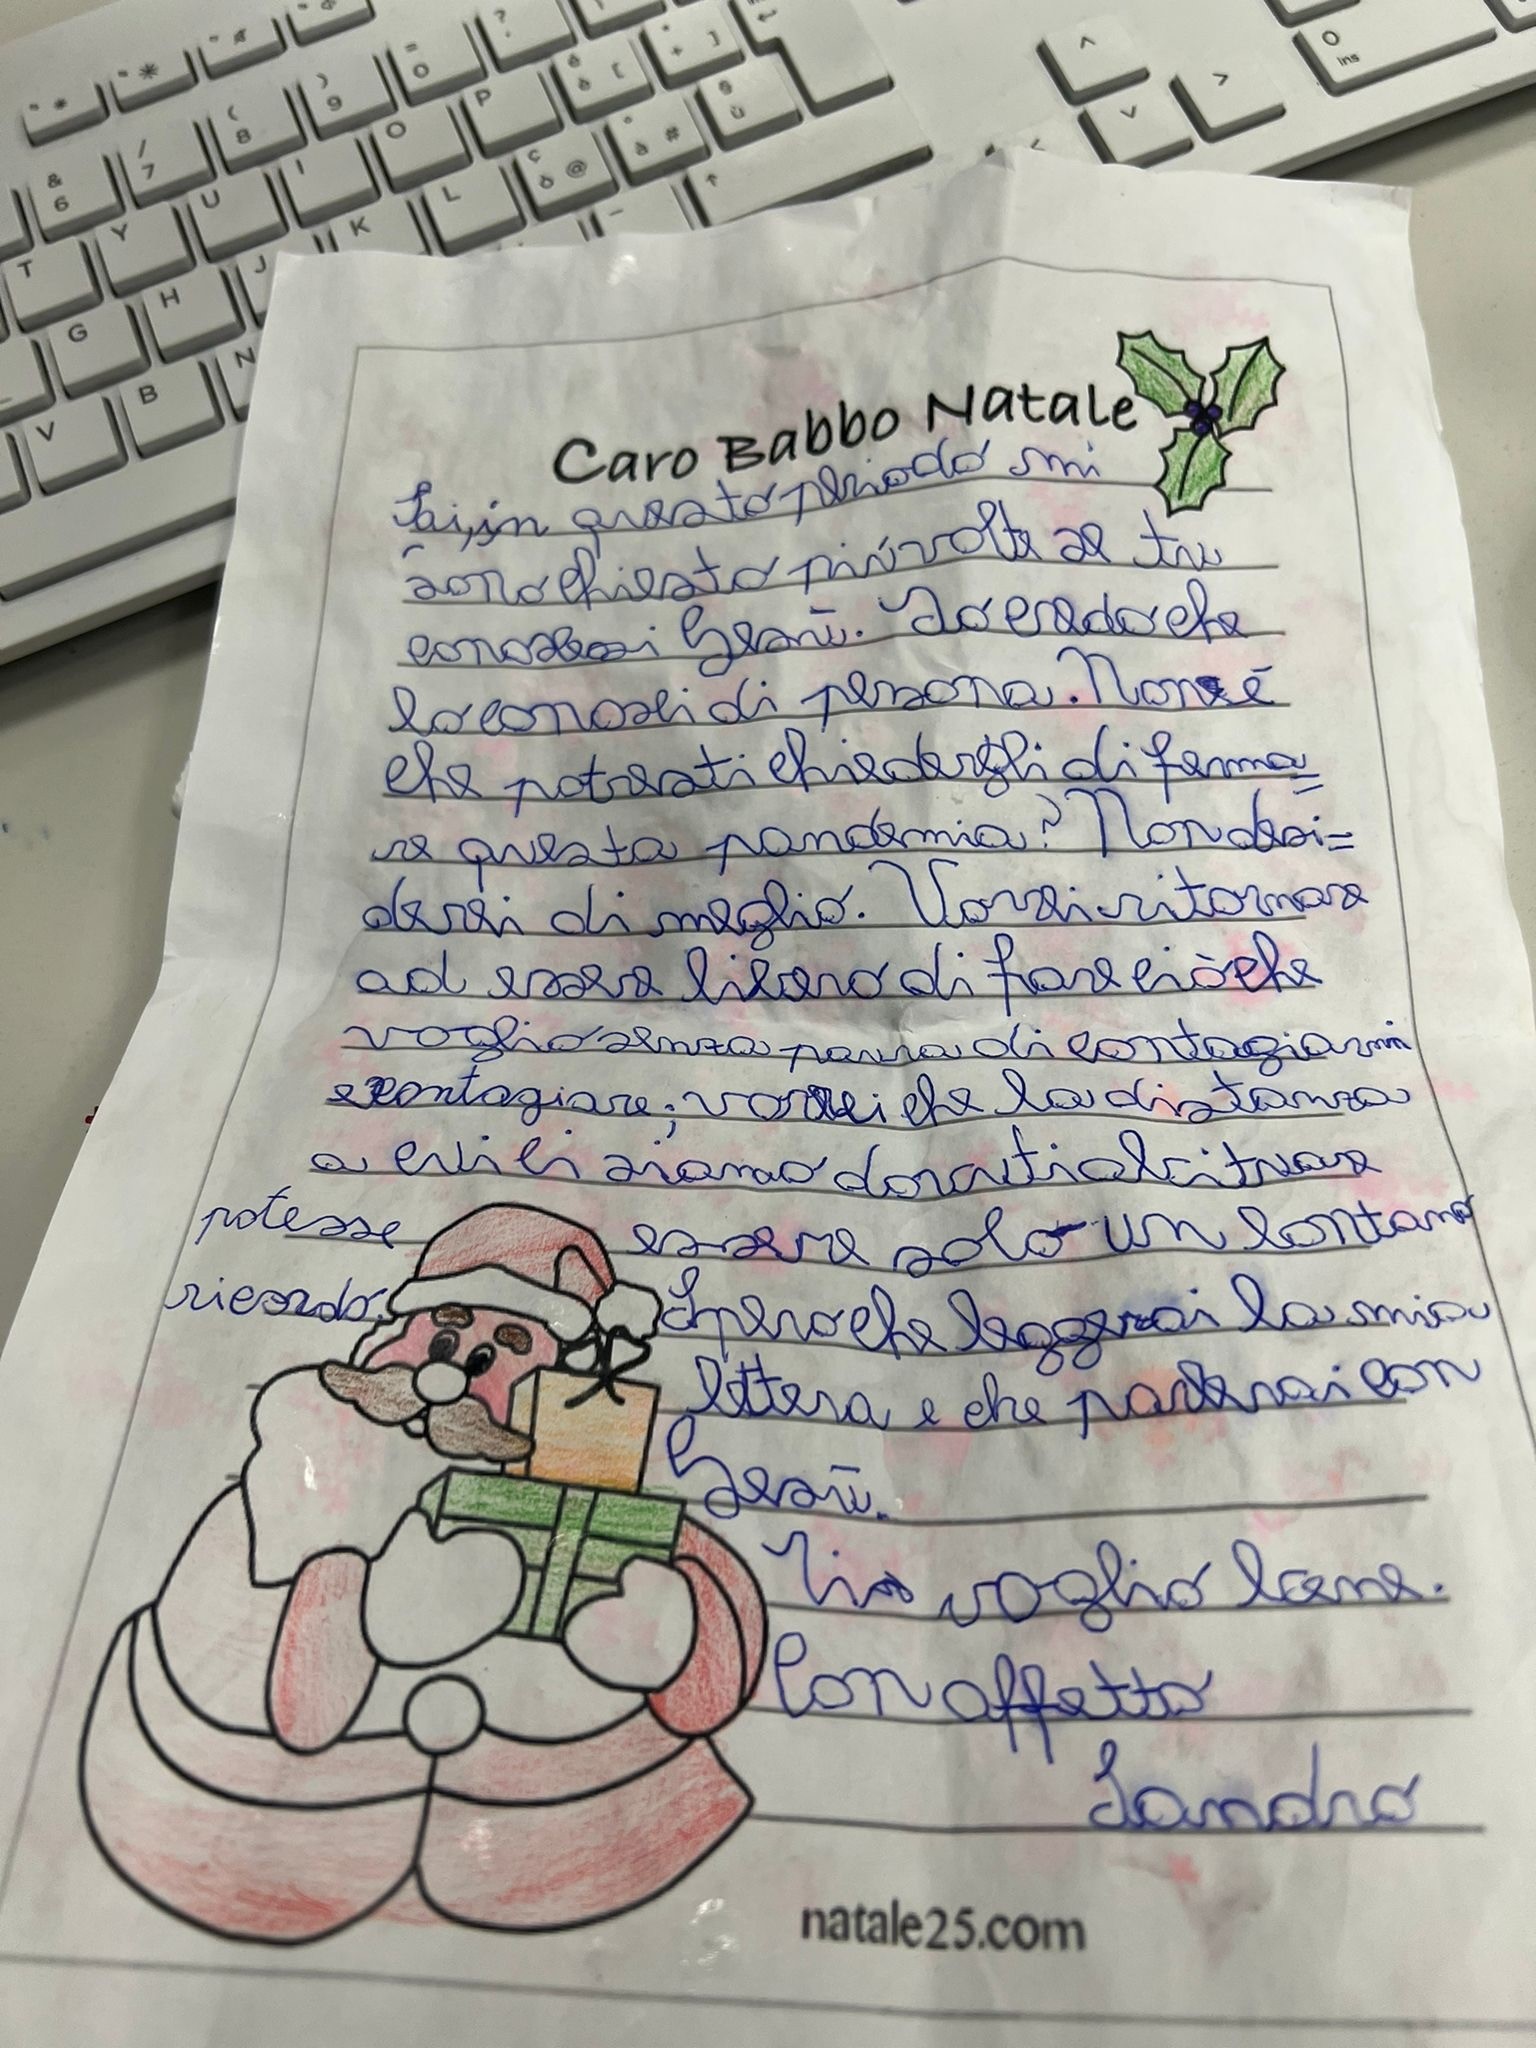 Caro Babbo Natale
Sai, in questo periodo mi
sono chiesto più volte se tu
conoscessi Gesù. Io credo che
lo conosci di persona. Non è
che potresti chiedergli di ferma=
re questa pandemia? Non desi=
derei di meglio. Vorrei ritornare
ad essere libero di fare ciò che
voglio senza paura di contagiarmi
e contagiare; vorrei che la distanza
a cui ci siamo dovuti abituare
potesse essere solo un lontano
ricordo. Spero che leggerai la mia
lettera e che parlerai con
Gesù.
Tio voglio bene.
Con affetto
Sandro
natale25.com
* " * " ) = ? ] [ + * ^
& / ( 8 9 0 O P
6 7 U I L ç ò @ ù
T Y K ° à #
G H J
V B N
0
Ins